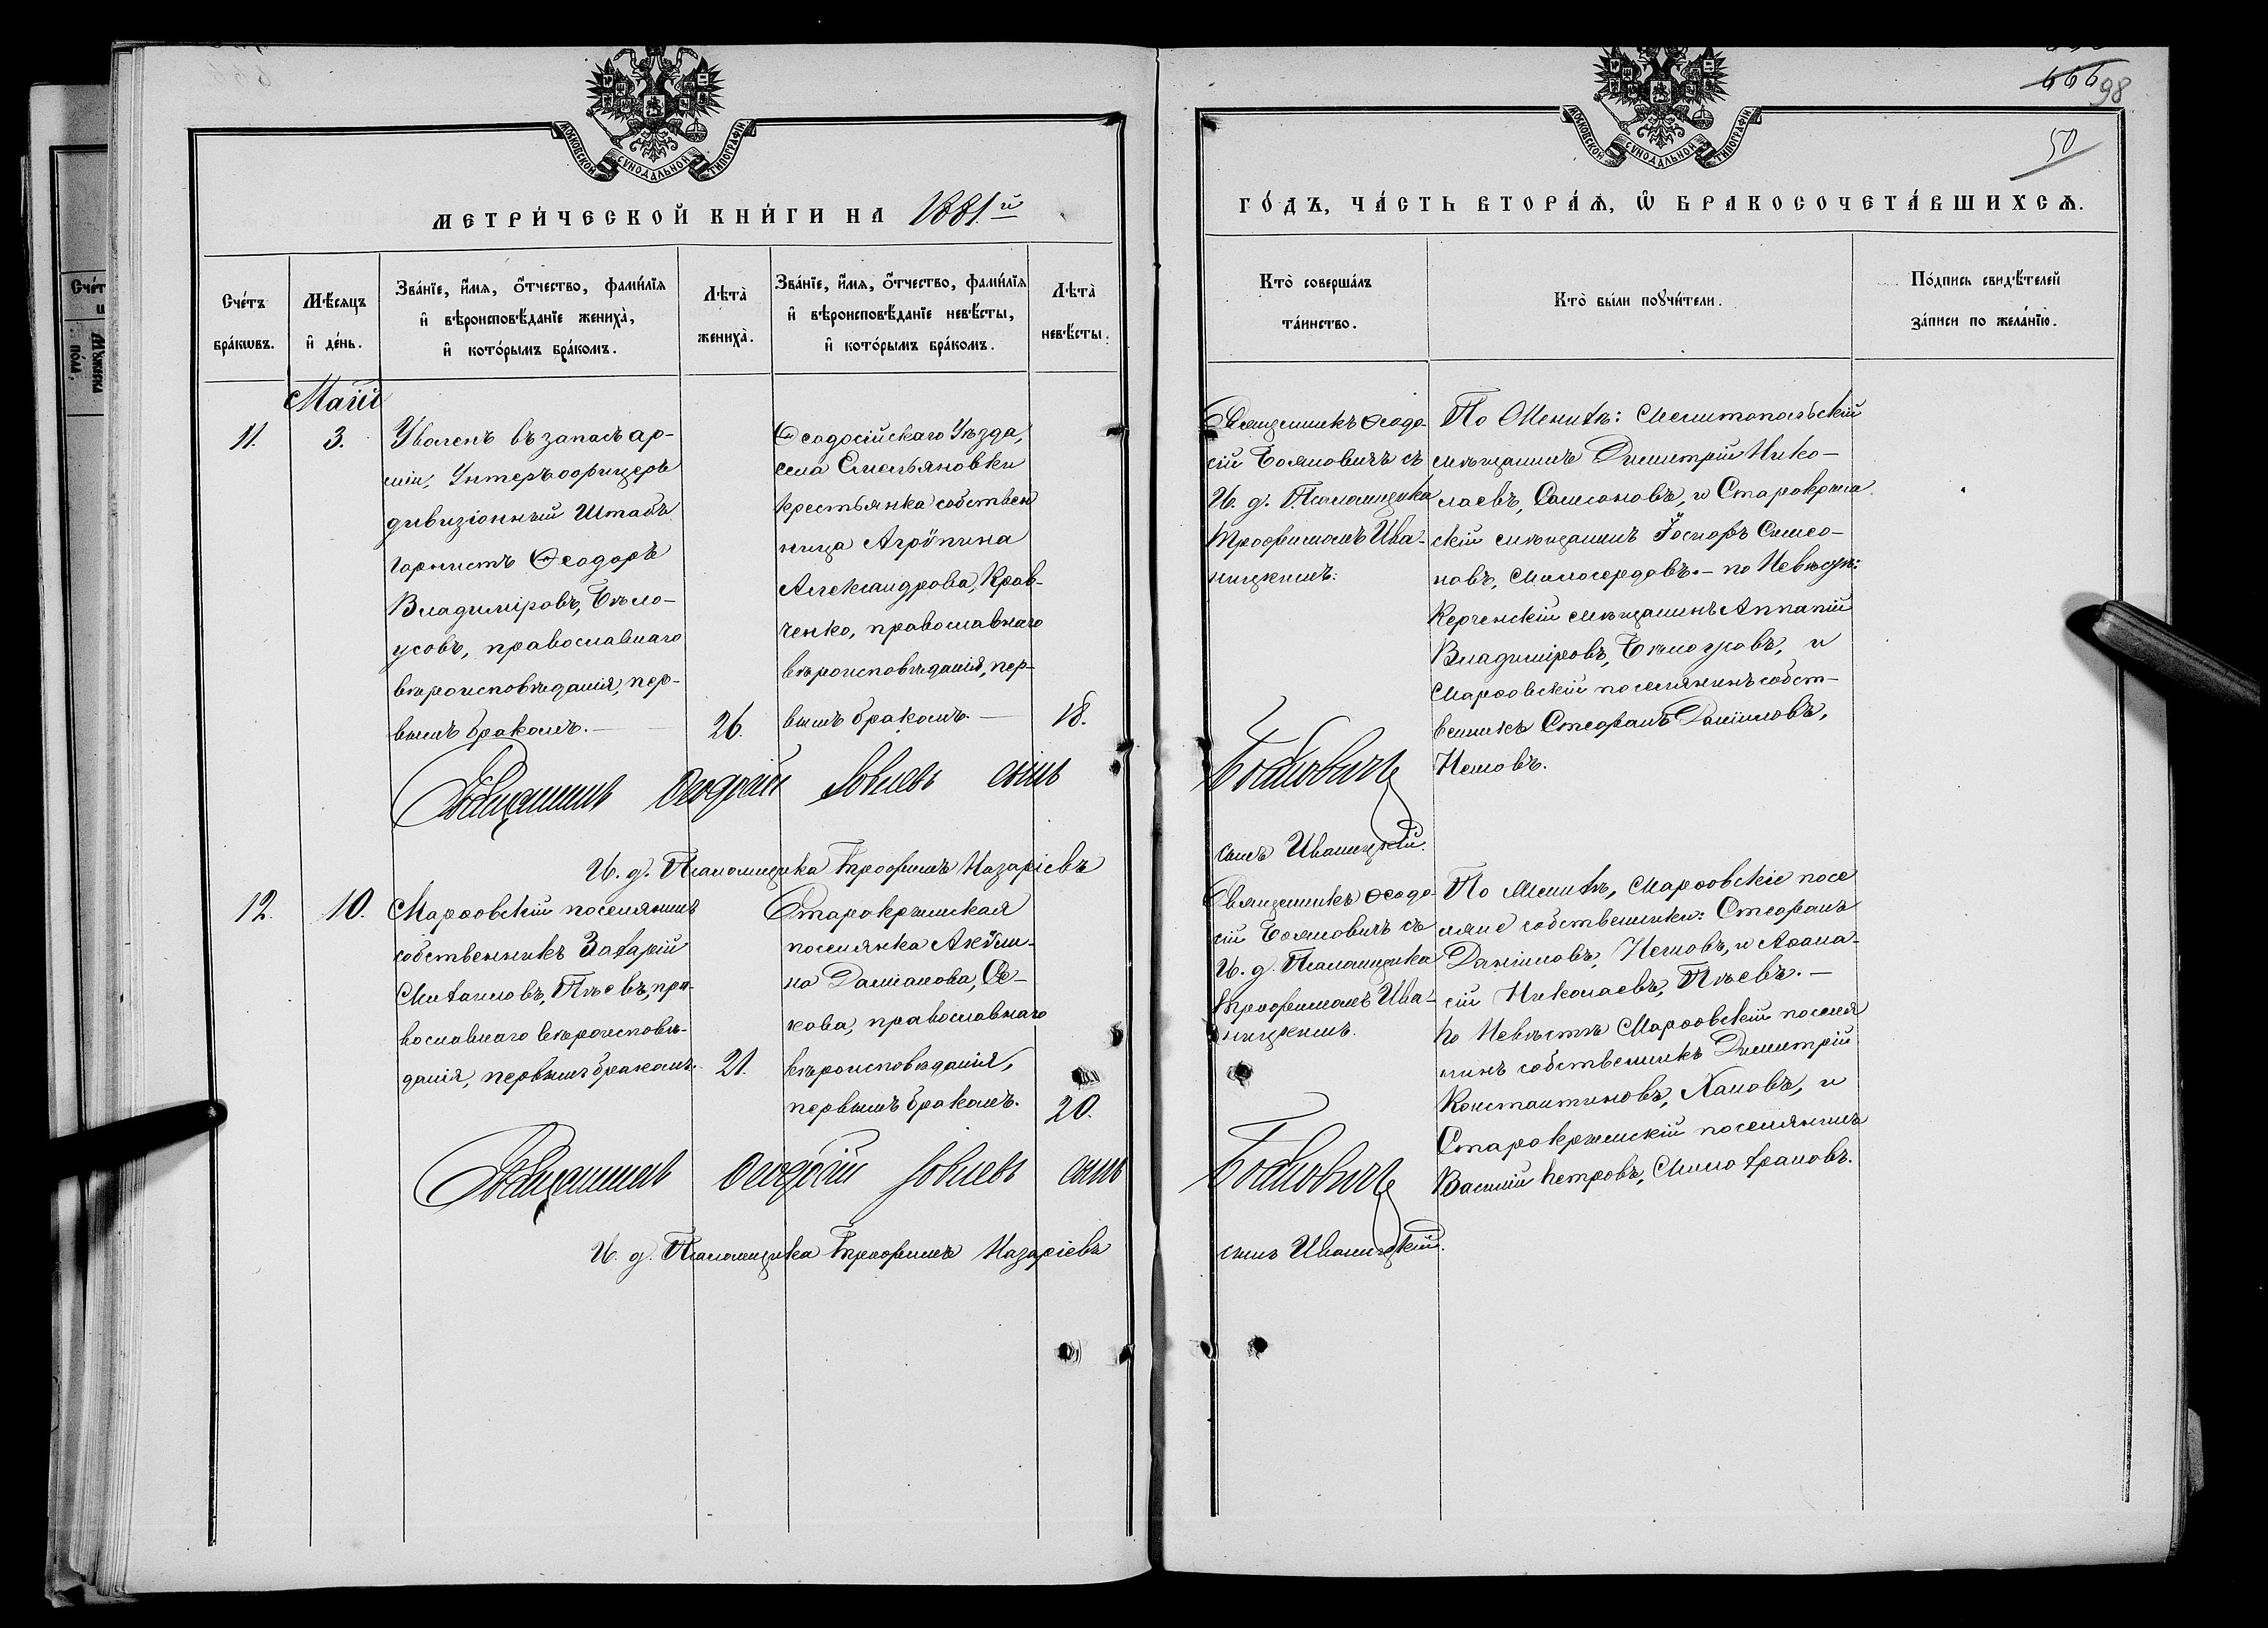 МОСКОВСКОЙ СѴНОДАЛЬНОЙ ТИПОГРАФІИ
МЕТРИ́ЧЕСКОЙ КНИ́ГИ НА 1881.й
Сче́тъ бра́кѡвъ.
Мѣ́сяцъ и҆ де́нь.
Зва́нїе, и҆́мѧ, ѻ҆́тчество, фами́лїѧ
и҆ вѣроисповѣ́данїе жениха̀,
и҆ кото́рымъ бра́комъ.
Лѣта̀ жениха̀.
Зва́нїе, и҆́мѧ, ѻ҆́тчество, фами́лїѧ
и҆ вѣроисповѣ́данїе невѣ́сты,
и҆ кото́рымъ бра́комъ.
Лѣта̀ невѣ́сты.
Маій
11.
3.
Уволенъ въ запасъ ар-
міи, Унтеръ офицеръ
дивизіонный Штабъ
горнистъ Ѳеодоръ
Владиміровъ, Бѣло-
усовъ, православнаго
вѣроисповѣданія, пер-
вымъ бракомъ.
26.
Ѳеодосійскаго Уѣзда,
села Емельяновки
крестьянка собствен
ница Агрѵпина
Александрова, Крав-
ченко, православнаго
вѣроисповѣданія, пер-
вымъ бракомъ.
18.
Священникъ Ѳеодосій Іовлевъ сынъ
И. д. Псаломщика Трофимъ Назаріевъ
12.
10.
Марѳовскій поселянинъ
собственникъ Захарій
Михаиловъ, Пѣевъ, пра-
вославнаго вѣроисповѣ-
данія, первымъ бракомъ.
21.
Старокрымская
поселянка Акѵли-
на Даміанова,
кова, православнаго
вѣроисповѣданія,
первымъ бракомъ.
20.
Священникъ Ѳеодосій Іовлевъ сынъ
И. д. Псаломщика Трофимъ Назаріевъ
666
98
50
МОСКОВСКОЙ СѴНОДАЛЬНОЙ ТИПОГРАФІИ
ГО́ДЪ, ЧА́СТЬ ВТОРА́Ѧ, Ѽ БРАКОСОЧЕТА́ВШИХСѦ.
Кто̀ соверша́лъ
та́инство.
Кто̀ бы́ли поꙋчи́тели.
По́дпись свидѣ́телей
за́писи по жела́нїю.
Священникъ Ѳеодо-
сій Бояновичъ съ
И. д. Псаломщика
Трофимомъ Ива-
ницкимъ.
По Женихѣ: Мелитопольскій
мѣщанинъ Димитрій Нико-
лаевъ, Самсоновъ, и Старокрым
скій мѣщанинъ Іосифъ Симео-
новъ, Милосердовъ. – по Невѣстѣ:
Керченскій мѣщанинъ Аппапій
Владиміровъ, Бѣлоусовъ, и
Марѳовскій поселянинъ собст-
венникъ Стефанъ Даніиловъ,
Немовъ.
Бояновичъ
сынъ Иваницкій.
Священникъ Ѳеодо-
сій Бояновичъ съ
И. д. Псаломщика
Трофимомъ Ива-
ницкимъ.
По Женихѣ, Марѳовскіе посе
ляне собственники: Стефанъ
Даніиловъ, Немовъ, и Аѳана-
сій Николаевъ, Пѣевъ. –
По Невѣстѣ Марѳовскій поселя
нинъ собственникъ Димитрій
Константиновъ, Пановъ, и
Старокрымскій поселянинъ
Василій Петровъ,
Бояновичъ
сынъ Иваницкій.